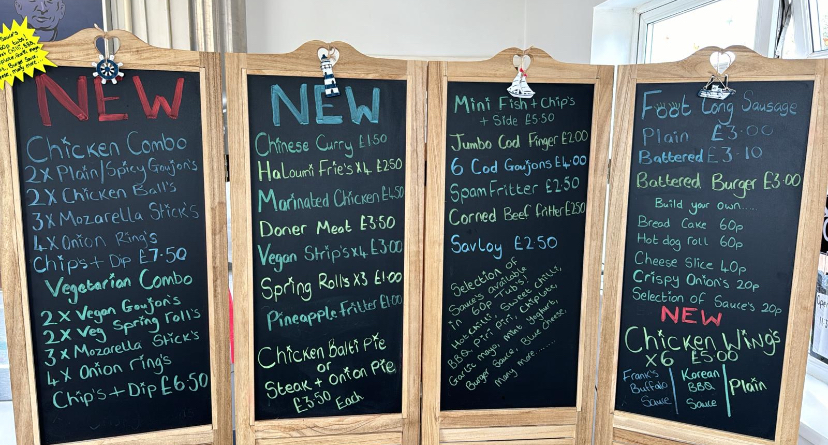 NEW
Chicken Combo
2x Plain/Spicy Goujon's
2x Chicken Ball's
3x Mozarella Stick's
4x Onion Ring's
Chip's + Dip £7.50
Vegetarian Combo
2x Vegan Goujon's
2x Veg Spring roll's
3x Mozarella Stick's
4x Onion ring's
Chip's + Dip £6.50
NEW
Chinese Curry £1.50
Haloumi Frie's x4 £2.50
Marinated Chicken £4.50
Doner Meat £3.50
Vegan Strip's x4 £3.00
Spring Roll's x3 £1.00
Pineapple Fritter £1.00
Chicken Balti Pie
or
Steak + Onion Pie
£3.50 Each
Mini Fish + Chip's
+ Side £5.50
Jumbo Cod Finger £2.00
6 Cod Goujons £4.00
Spam Fritter £2.50
Corned Beef fritter £2.50
Savloy £2.50
Selection of
Sauce's available
in 60p Tub's!
Hot chilli, Sweet chilli,
BBQ, Piri Piri, Chipotle,
Garlic mayo, mint Yoghurt,
Burger Sauce, Blue Cheese,
many more......
Foot Long Sausage
Plain £3.00
Battered £3.10
Battered Burger £3.00
Build your own.....
Bread Cake 60p
Hot dog roll 60p
Cheese Slice 40p
Crispy Onion's 20p
Selection of Sauce's 20p
NEW
Chicken Wing's
x6 £5.00
Frank's Buffalo Sauce
Korean BBQ Sauce
Plain